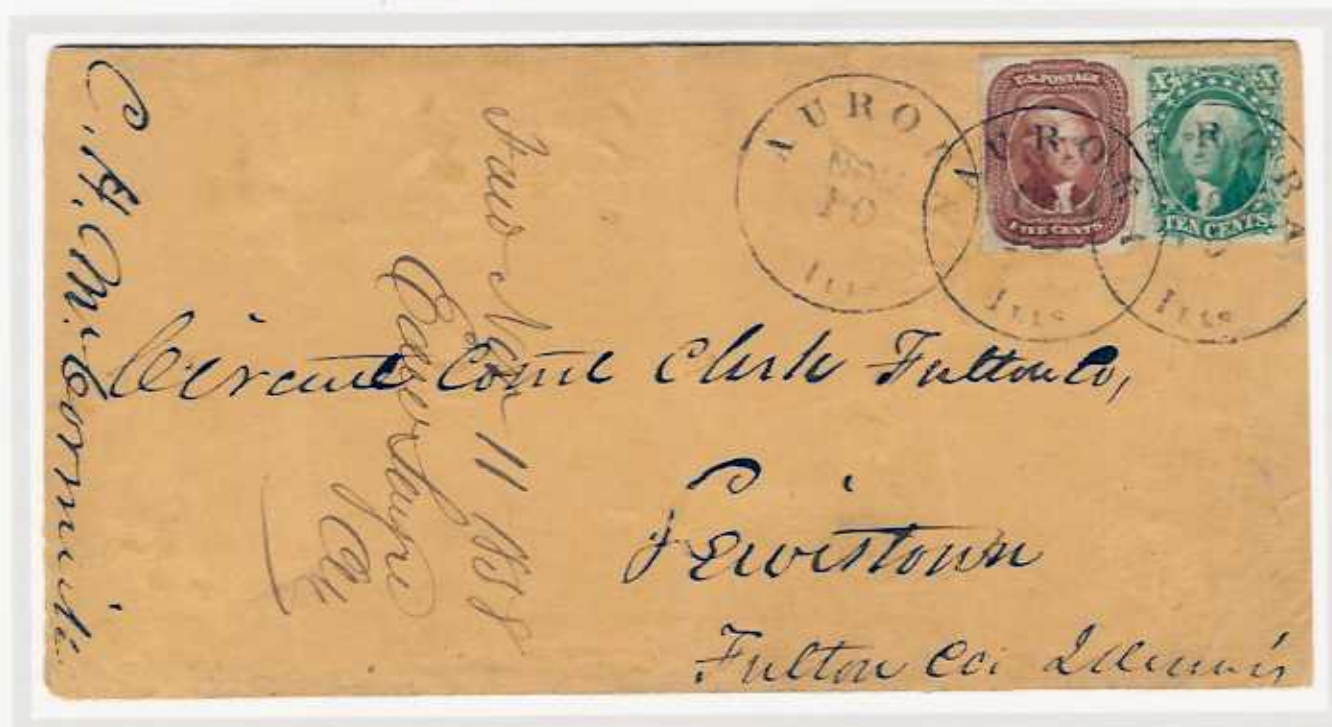 C. H. McCormick
AURORA
10
Ills
AURORA
Ills
AURORA
Ills
U.S. POSTAGE
FIVE CENTS
X X
TEN CENTS
11 1858
Circuit Court Clerk Fulton Co,
Lewistown
Fulton Co. Illinois